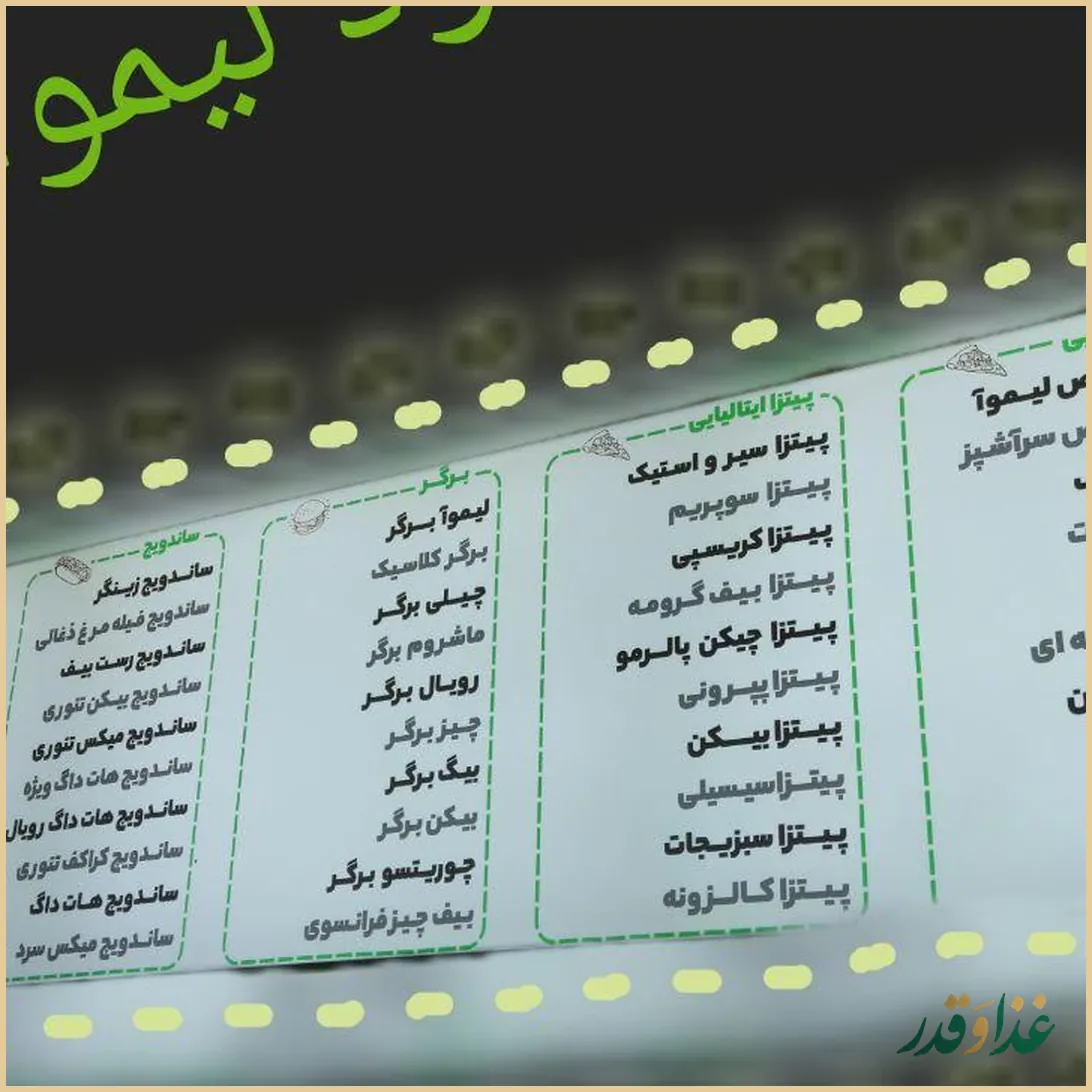 لیمو
لیـموآ
سرآشپز
ه ای
پیتزا ایتالیایی
پیتزا سیر و استیک
پیـتزا سوپریم
پیـتزا کریسپی
پیـتزا بیف گـرومه
پیـتزا چیکن پالـرمو
پیـتزا پپـرونی
پیـتزا بیـکن
پیـتزا سیسیلی
پیـتزا سبزیجات
پیـتزا کـالـزونه
برگر
لیموآ بـرگر
برگر کلاسیک
چیـلی برگـر
ماشروم برگر
رویـال برگـر
چـیز برگـر
بیگ برگر
بیکن برگر
چـوریـتسو برگـر
بیـف چیـز فرانـسوی
ساندویچ
ساندویچ زینگر
ساندویچ فیله مرغ ذغالی
ساندویچ رست بیف
ساندویچ بیکن تنوری
ساندویچ میکس تنوری
ساندویچ هات داگ ویژه
ساندویچ هات داگ رویال
ساندویچ کراکف تنوری
ساندویچ هات داگ
ساندویچ میکس سرد
غذا و قدر